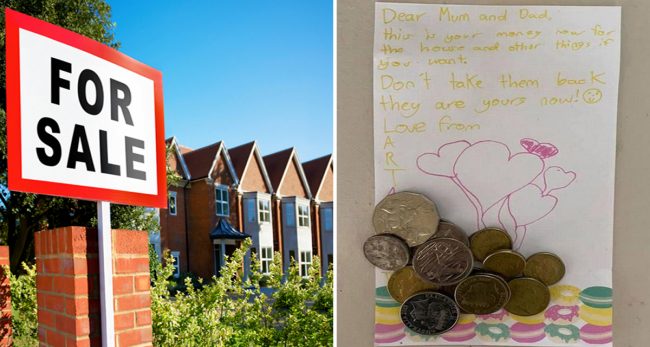 FOR
SALE
Dear Mum and Dad,
this is your money now for
the house and other things if
you want.
Don't take them back
they are yours now!
Love from
A
R
T